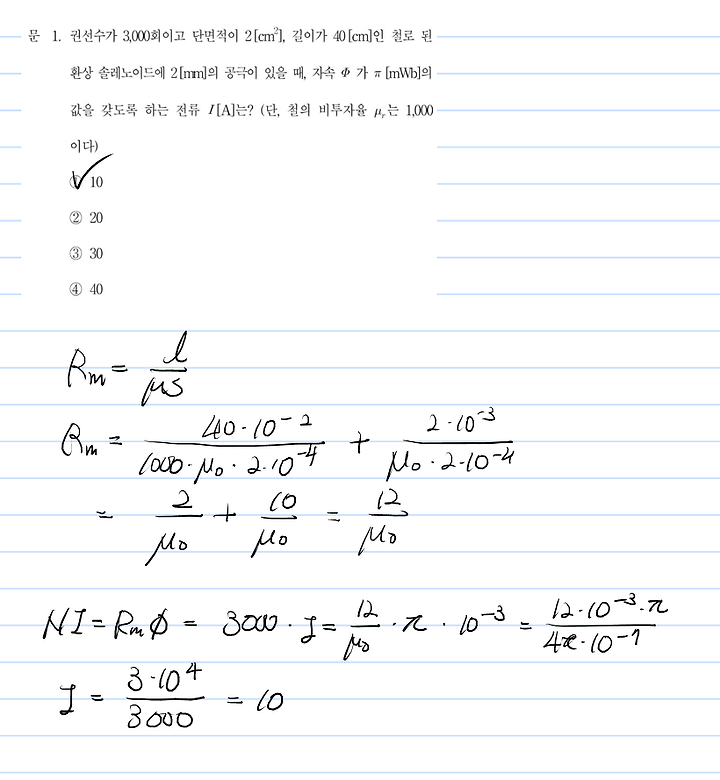 문 1. 권선수가 3,000회이고 단면적이 2[cm²], 길이가 40[cm]인 철로 된
환상 솔레노이드에 2[mm]의 공극이 있을 때, 자속 Φ 가 π [mWb]의
값을 갖도록 하는 전류 I[A]는? (단, 철의 비투자율 μr는 1,000
이다)
① 10
② 20
③ 30
④ 40
Rm = l/μS
Rm = 40·10⁻²/1000·μ₀·2·10⁻⁴ + 2·10⁻³/μ₀·2·10⁻⁴
= 2/μ₀ + 10/μ₀ = 12/μ₀
NI = Rm ϕ = 3000·I = 12/μ₀ · π · 10⁻³ = 12·10⁻³·π/4π·10⁻⁷
I = 3·10⁴/3000 = 10